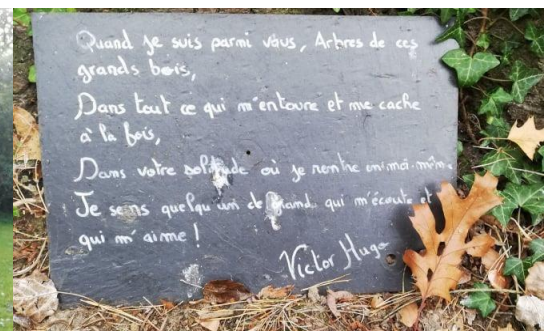 Quand je suis parmi vous, Arbres de ces
grands bois,
Dans tout ce qui m'entoure et me cache
à la fois,
Dans votre solitude où je rentre en moi-même,
Je sens quelqu'un de grand qui m'écoute et
qui m'aime !
Victor Hugo